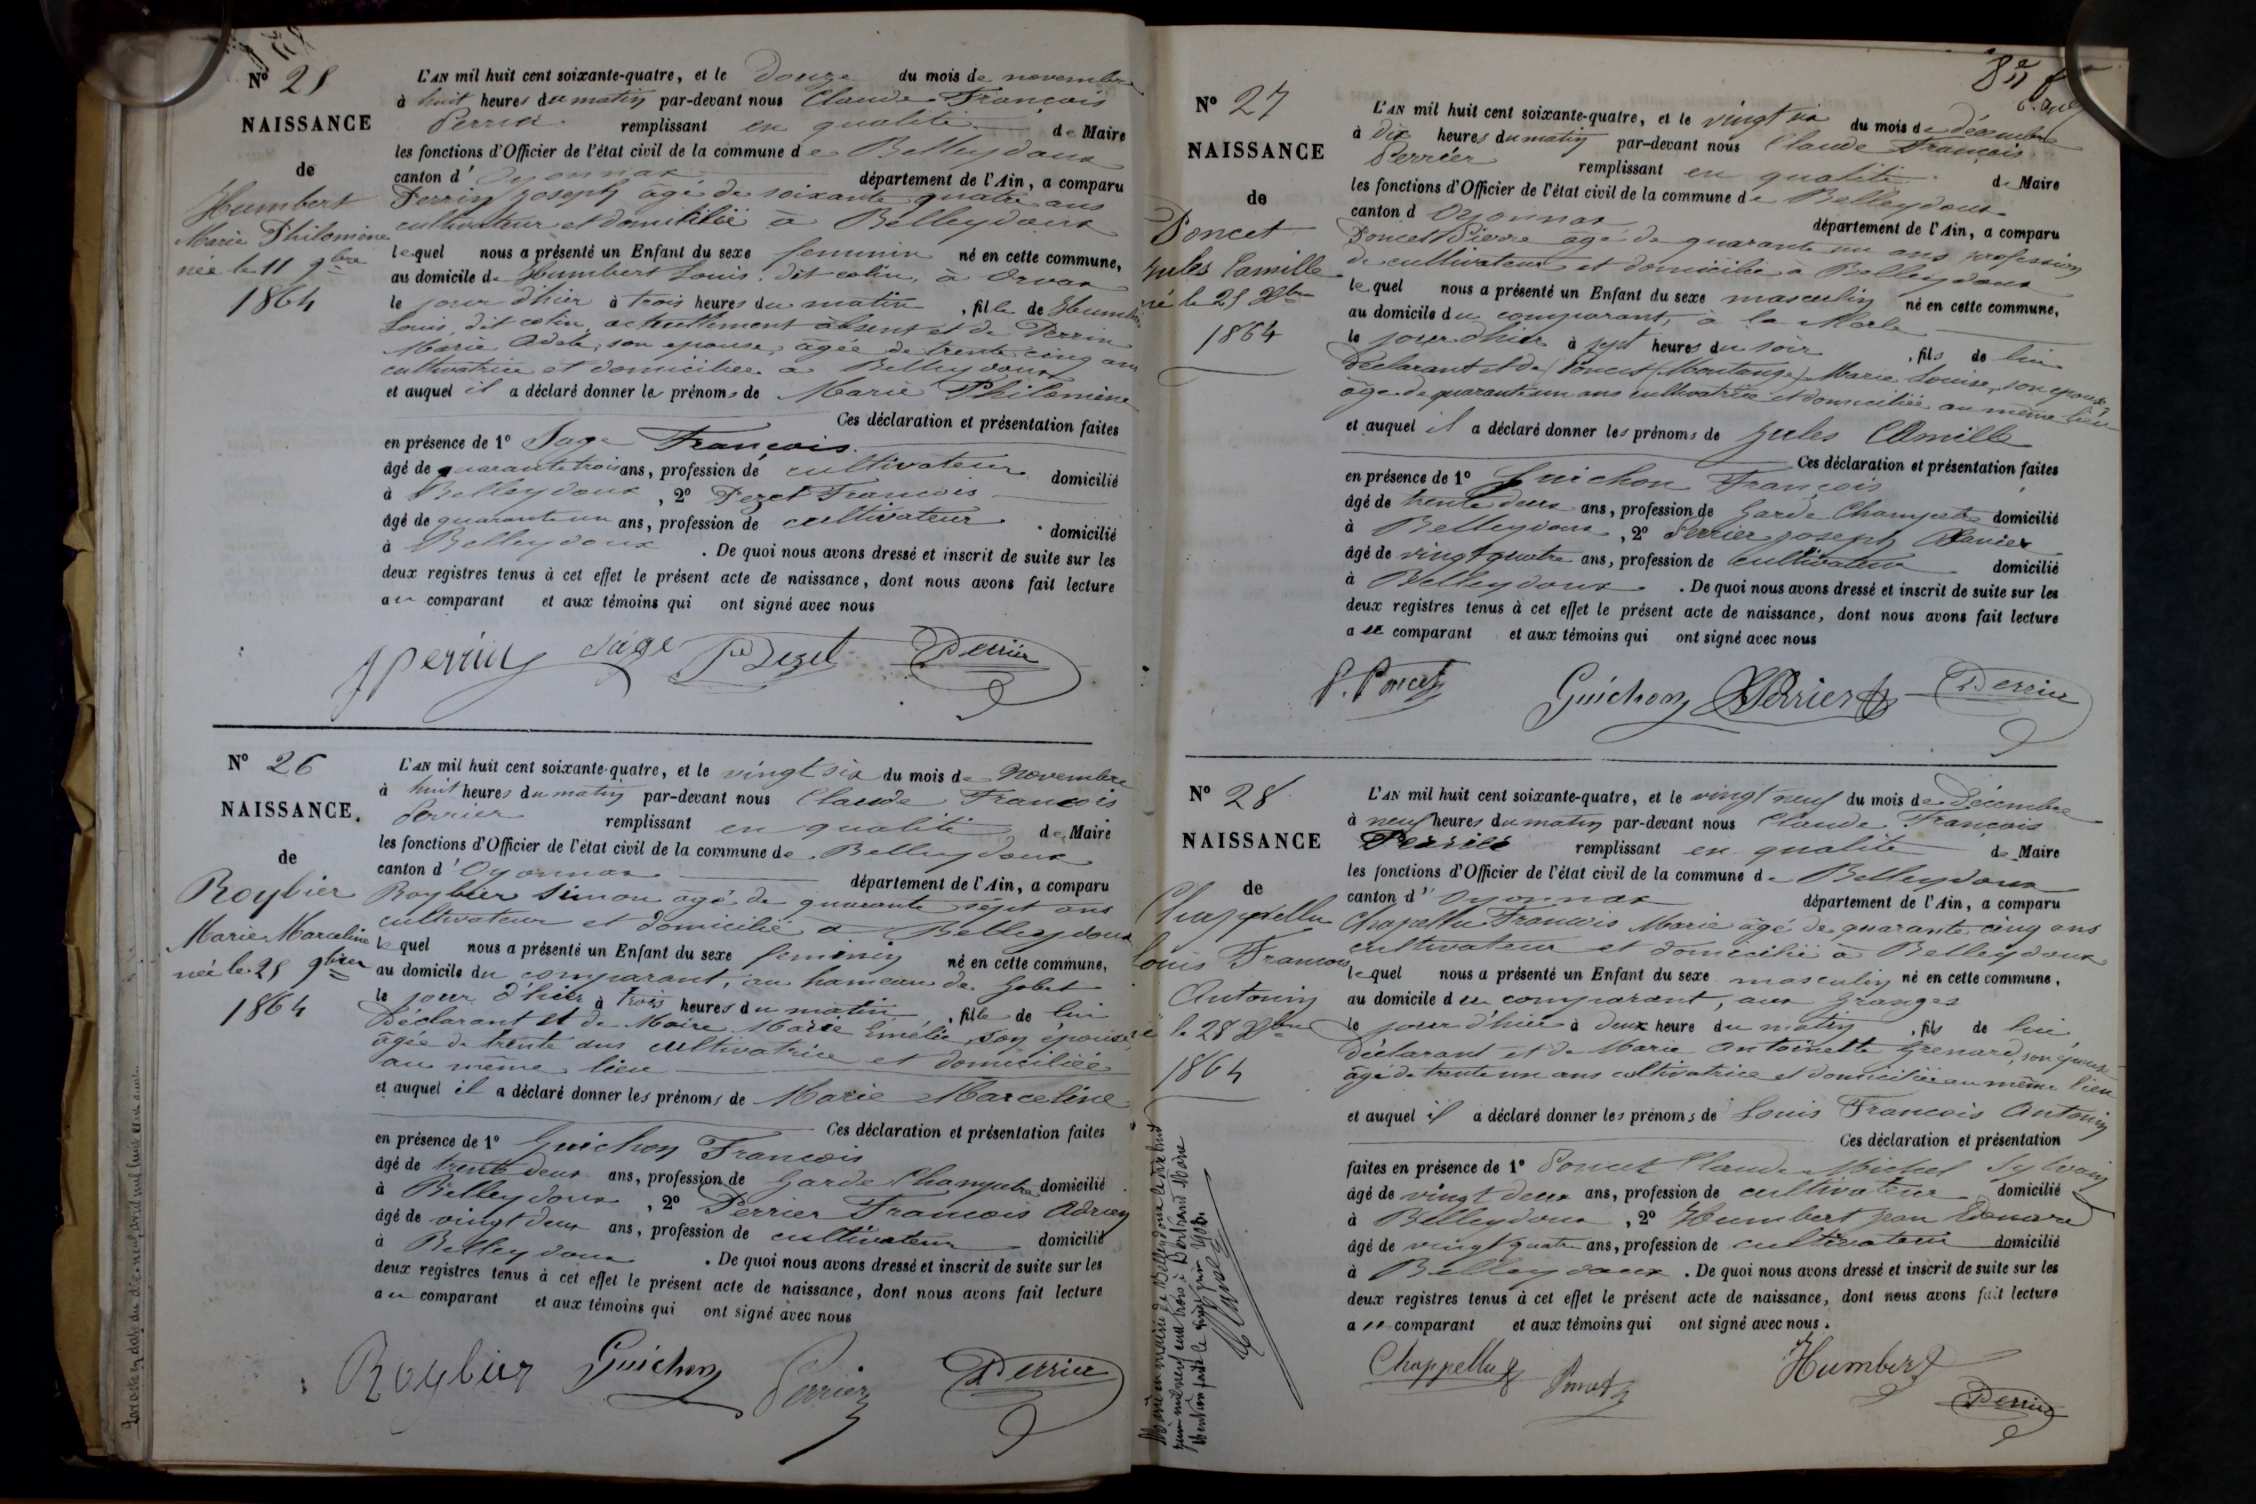 Nº 25
NAISSANCE
de
Humbert
Marie Philomène
née le 11 9bre
1864
L'AN mil huit cent soixante-quatre, et le douze du mois de novembre
à huit heures du matin par-devant nous Claude François
Perrier remplissant en qualité de Maire
les fonctions d'Officier de l'état civil de la commune de Belleydoux
canton d'Oyonnax département de l'Ain, a comparu
Perrin Joseph agé de soixante quatre ans
cultivateur et domicilié à Belleydoux
lequel nous a présenté un Enfant du sexe feminin né en cette commune,
au domicile de Humbert Louis, dit colin, à Orvaz
le jour d'hier à trois heures du matin, fille de Humbert
Louis, dit colin, actuellement absent et de Perrin
Marie Adele, son epouse, âgée de trente cinq ans
cultivatrice et domiciliée a Belleydoux
et auquel il a déclaré donner les prénoms de Marie Philomène
Ces déclaration et présentation faites
en présence de 1º Sage François
âgé de quarante trois ans, profession de cultivateur domicilié
à Belleydoux, 2º Dezet François
âgé de quarante un ans, profession de cultivateur domicilié
à Belleydoux. De quoi nous avons dressé et inscrit de suite sur les
deux registres tenus à cet effet le présent acte de naissance, dont nous avons fait lecture
au comparant et aux témoins qui ont signé avec nous
J Perrin Sage Dezet Perrier
Nº 26
NAISSANCE.
de
Roybier
Marie Marceline
née le 25 9bre
1864
L'AN mil huit cent soixante-quatre, et le vingt six du mois de Novembre
à huit heures du matin par-devant nous Claude François
Perrier remplissant en qualité de Maire
les fonctions d'Officier de l'état civil de la commune de Belleydoux
canton d'Oyonnax département de l'Ain, a comparu
Roybier Simon agé de quarante sept ans
cultivateur et domicilié a Belleydoux
lequel nous a présenté un Enfant du sexe feminin né en cette commune,
au domicile du comparant, au hameau de Gobet
le jour d'hier à trois heures du matin, fille de lui
Déclarant et de Maire Marie Emélie, son épouse,
âgée de trente ans cultivatrice et domiciliée
au même lieu
et auquel il a déclaré donner les prénoms de Marie Marceline
Ces déclaration et présentation faites
en présence de 1º Guichon François
âgé de trente deux ans, profession de Garde Champetre domicilié
à Belleydoux, 2º Perrier François Adrien
âgé de vingt deux ans, profession de cultivateur domicilié
à Belleydoux. De quoi nous avons dressé et inscrit de suite sur les
deux registres tenus à cet effet le présent acte de naissance, dont nous avons fait lecture
au comparant et aux témoins qui ont signé avec nous
Roybier Guichon Perrier Perrier
8e
Nº 27
NAISSANCE
de
Poncet
Jules Camille
né le 25 Xbre
1864
L'AN mil huit cent soixante-quatre, et le vingt six du mois de décembre
à dix heures du matin par-devant nous Claude François
Perrier remplissant en qualité de Maire
les fonctions d'Officier de l'état civil de la commune de Belleydoux
canton d Oyonnax département de l'Ain, a comparu
Poncet Pierre agé de quarante un ans profession
de cultivateur et domicilié à Belleydoux
lequel nous a présenté un Enfant du sexe masculin né en cette commune,
au domicile du comparant, à la Marle
le jour d'hier à sept heures du soir, fils de lui
Déclarant et de Poncet (Montange) Marie Louise, son epouse
âgée de quarante un ans cultivatrice et domiciliée au même lieu
et auquel il a déclaré donner les prénoms de Jules Camille
Ces déclaration et présentation faites
en présence de 1º Guichon François
âgé de trente deux ans, profession de Garde Champetre domicilié
à Belleydoux, 2º Perrier Joseph Xavier
âgé de vingt quatre ans, profession de cultivateur domicilié
à Belleydoux. De quoi nous avons dressé et inscrit de suite sur les
deux registres tenus à cet effet le présent acte de naissance, dont nous avons fait lecture
au comparant et aux témoins qui ont signé avec nous
P. Poncet Guichon Perrier Perrier
Nº 28
NAISSANCE
de
Chappellu
Louis Francois
Antonin
né le 28 Xbre
1864
L'AN mil huit cent soixante-quatre, et le vingt neuf du mois de Décembre
à neuf heures du matin par-devant nous Claude François
Perrier remplissant en qualité de Maire
les fonctions d'Officier de l'état civil de la commune de Belleydoux
canton d'Oyonnax département de l'Ain, a comparu
Chapellu Francois Marie âgé de quarante cinq ans
cultivateur et domicilié à Belleydoux
lequel nous a présenté un Enfant du sexe masculin né en cette commune,
au domicile du comparant, aux Granges
le jour d'hier à deux heure du matin, fils de lui
déclarant et de Marie Antoinette Grenard, son épouse
âgée de trente un ans cultivatrice et domiciliée au même lieu
et auquel il a déclaré donner les prénoms de Louis Francois Antonin
Ces déclaration et présentation
faites en présence de 1º Poncet Claude Michel Sylvain
âgé de vingt deux ans, profession de cultivateur domicilié
à Belleydoux, 2º Humbert Jean Edouard
âgé de vingt quatre ans, profession de cultivateur domicilié
à Belleydoux. De quoi nous avons dressé et inscrit de suite sur les
deux registres tenus à cet effet le présent acte de naissance, dont nous avons fait lecture
au comparant et aux témoins qui ont signé avec nous.
Chappellu Poncet Humbert
Perrier
Marié en mairie de Belleydoux le dix huit
juin mil neuf cent trois à Bertrand Marie
Mention faite le vingt juin 1903.